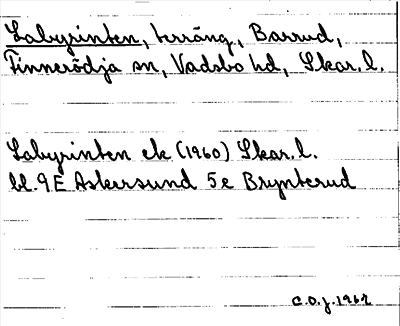 Labyrinten, terräng, Barrud,
Finnerödja sn, Vadsbo hd, Skar. l.
Labyrinten ek (1960) Skar. l.
bl. 9E Askersund 5e Brynterud
C.O.J. 1962